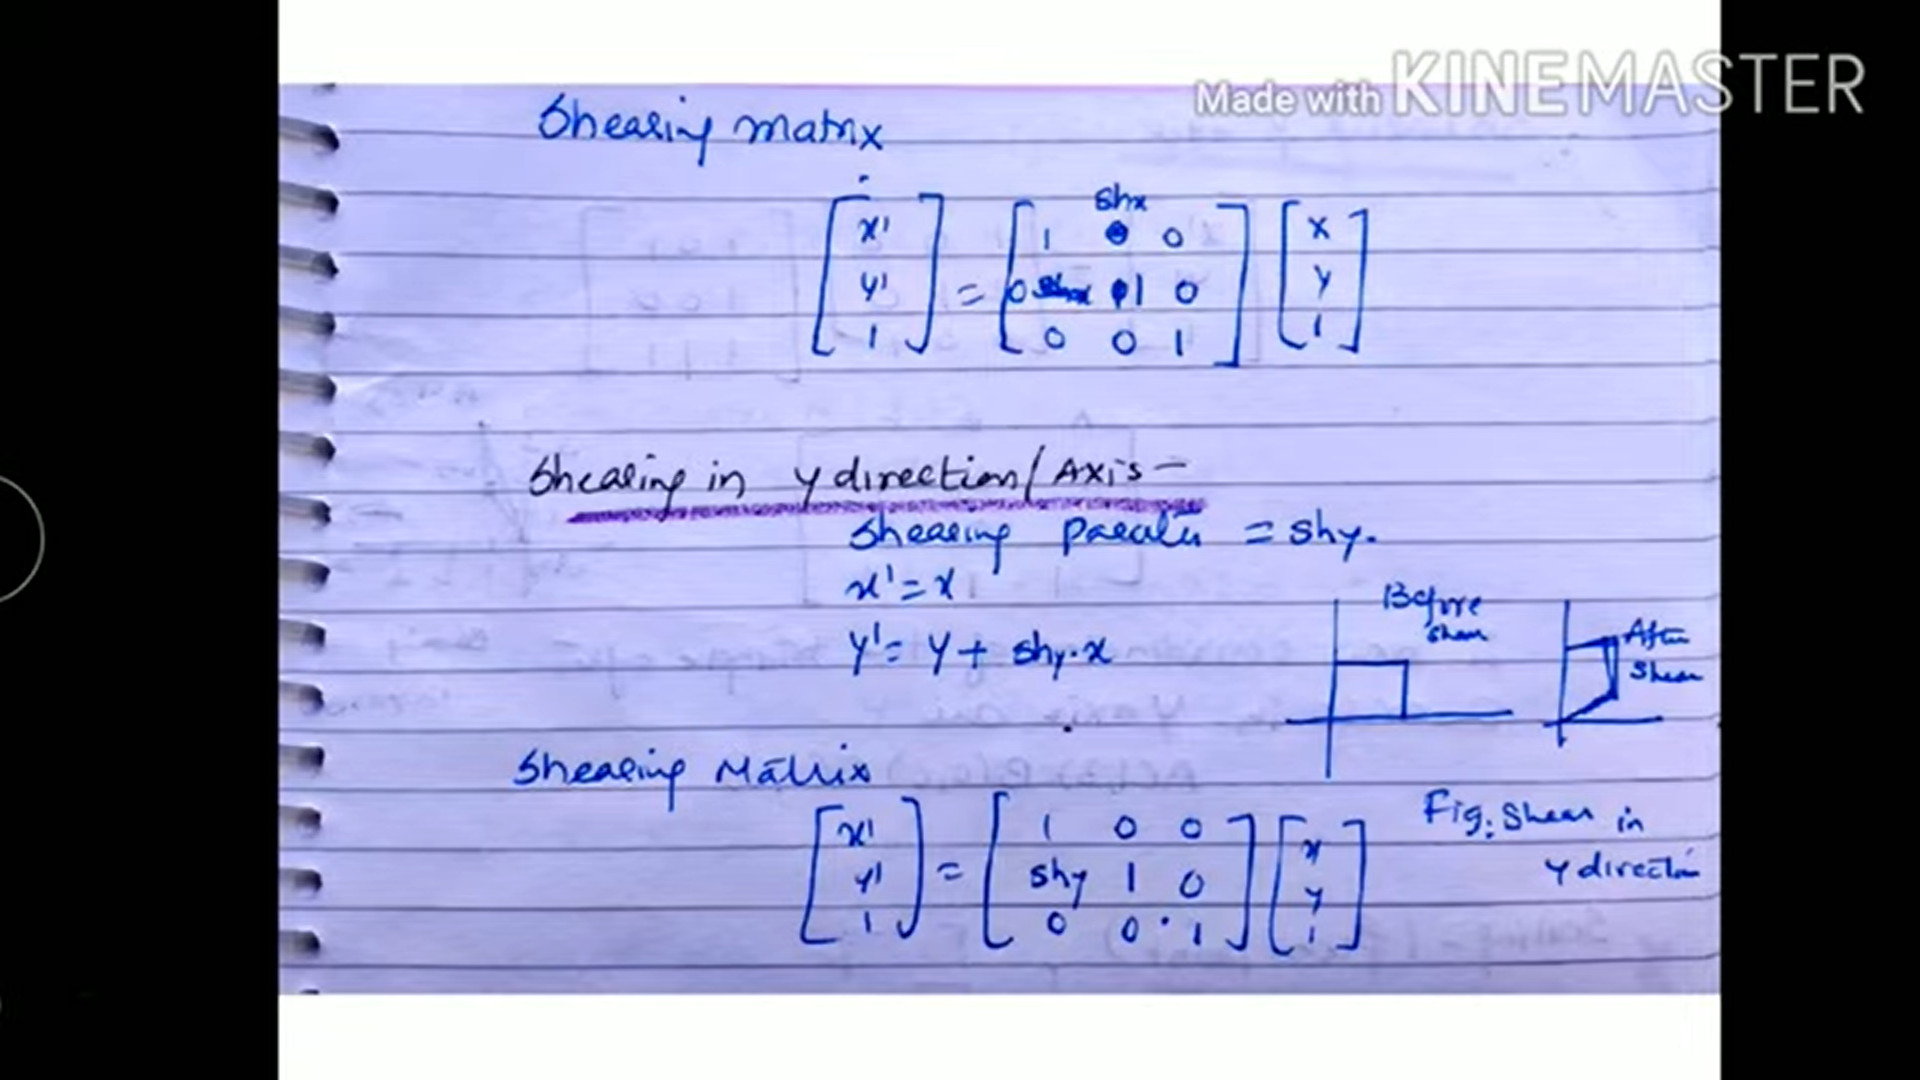 Made with KINEMASTER
Shearing matrix
shx
[x'] = [1 0] [x]
[y'] [0 1 0] [y]
[1] [0 0 1] [1]
Shearing in y direction / Axis -
Shearing = shy.
x' = x
y' = y + shy.x
Before
shear
After
Shear
Shearing Matrix
[x'] = [1 0 0] [x]
[y'] [shy 1 0] [y]
[1] [0 0 1] [1]
Fig: Shear in
y direction